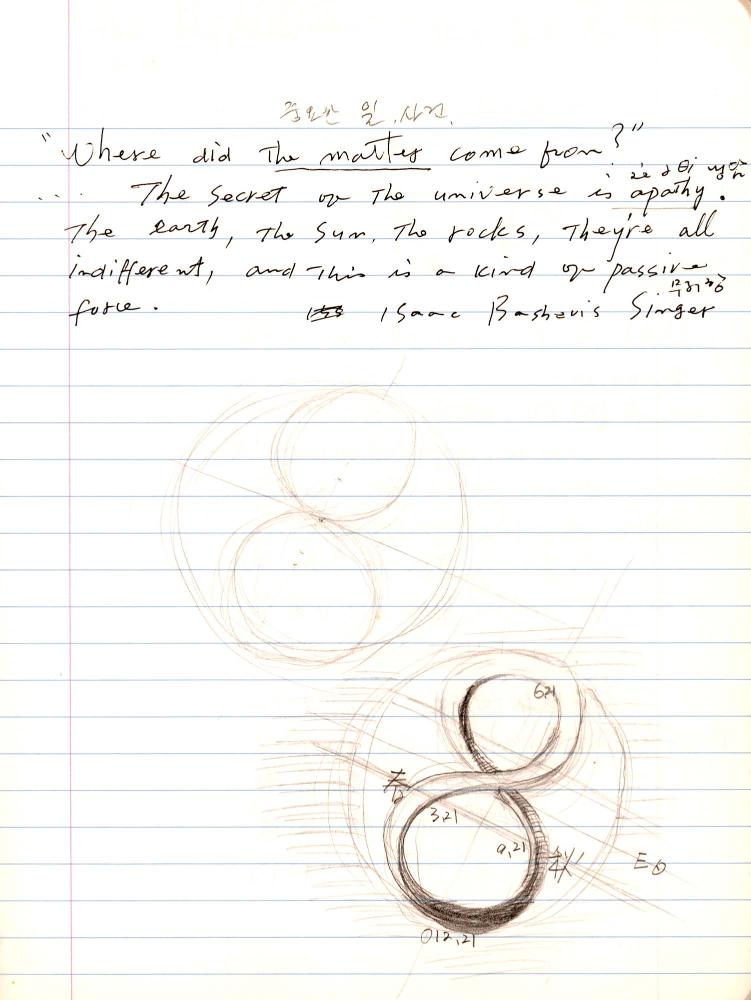 중요한 일. 사건.
"Where did The matter come from?"
... The secret of The universe is apathy.
The earth, The Sun, The rocks, They're all
indifferent, and This is a kind of passive
무저항
force. Isaac Bashevis Singer
6.21
춘
3.21
9.21
추
012.21